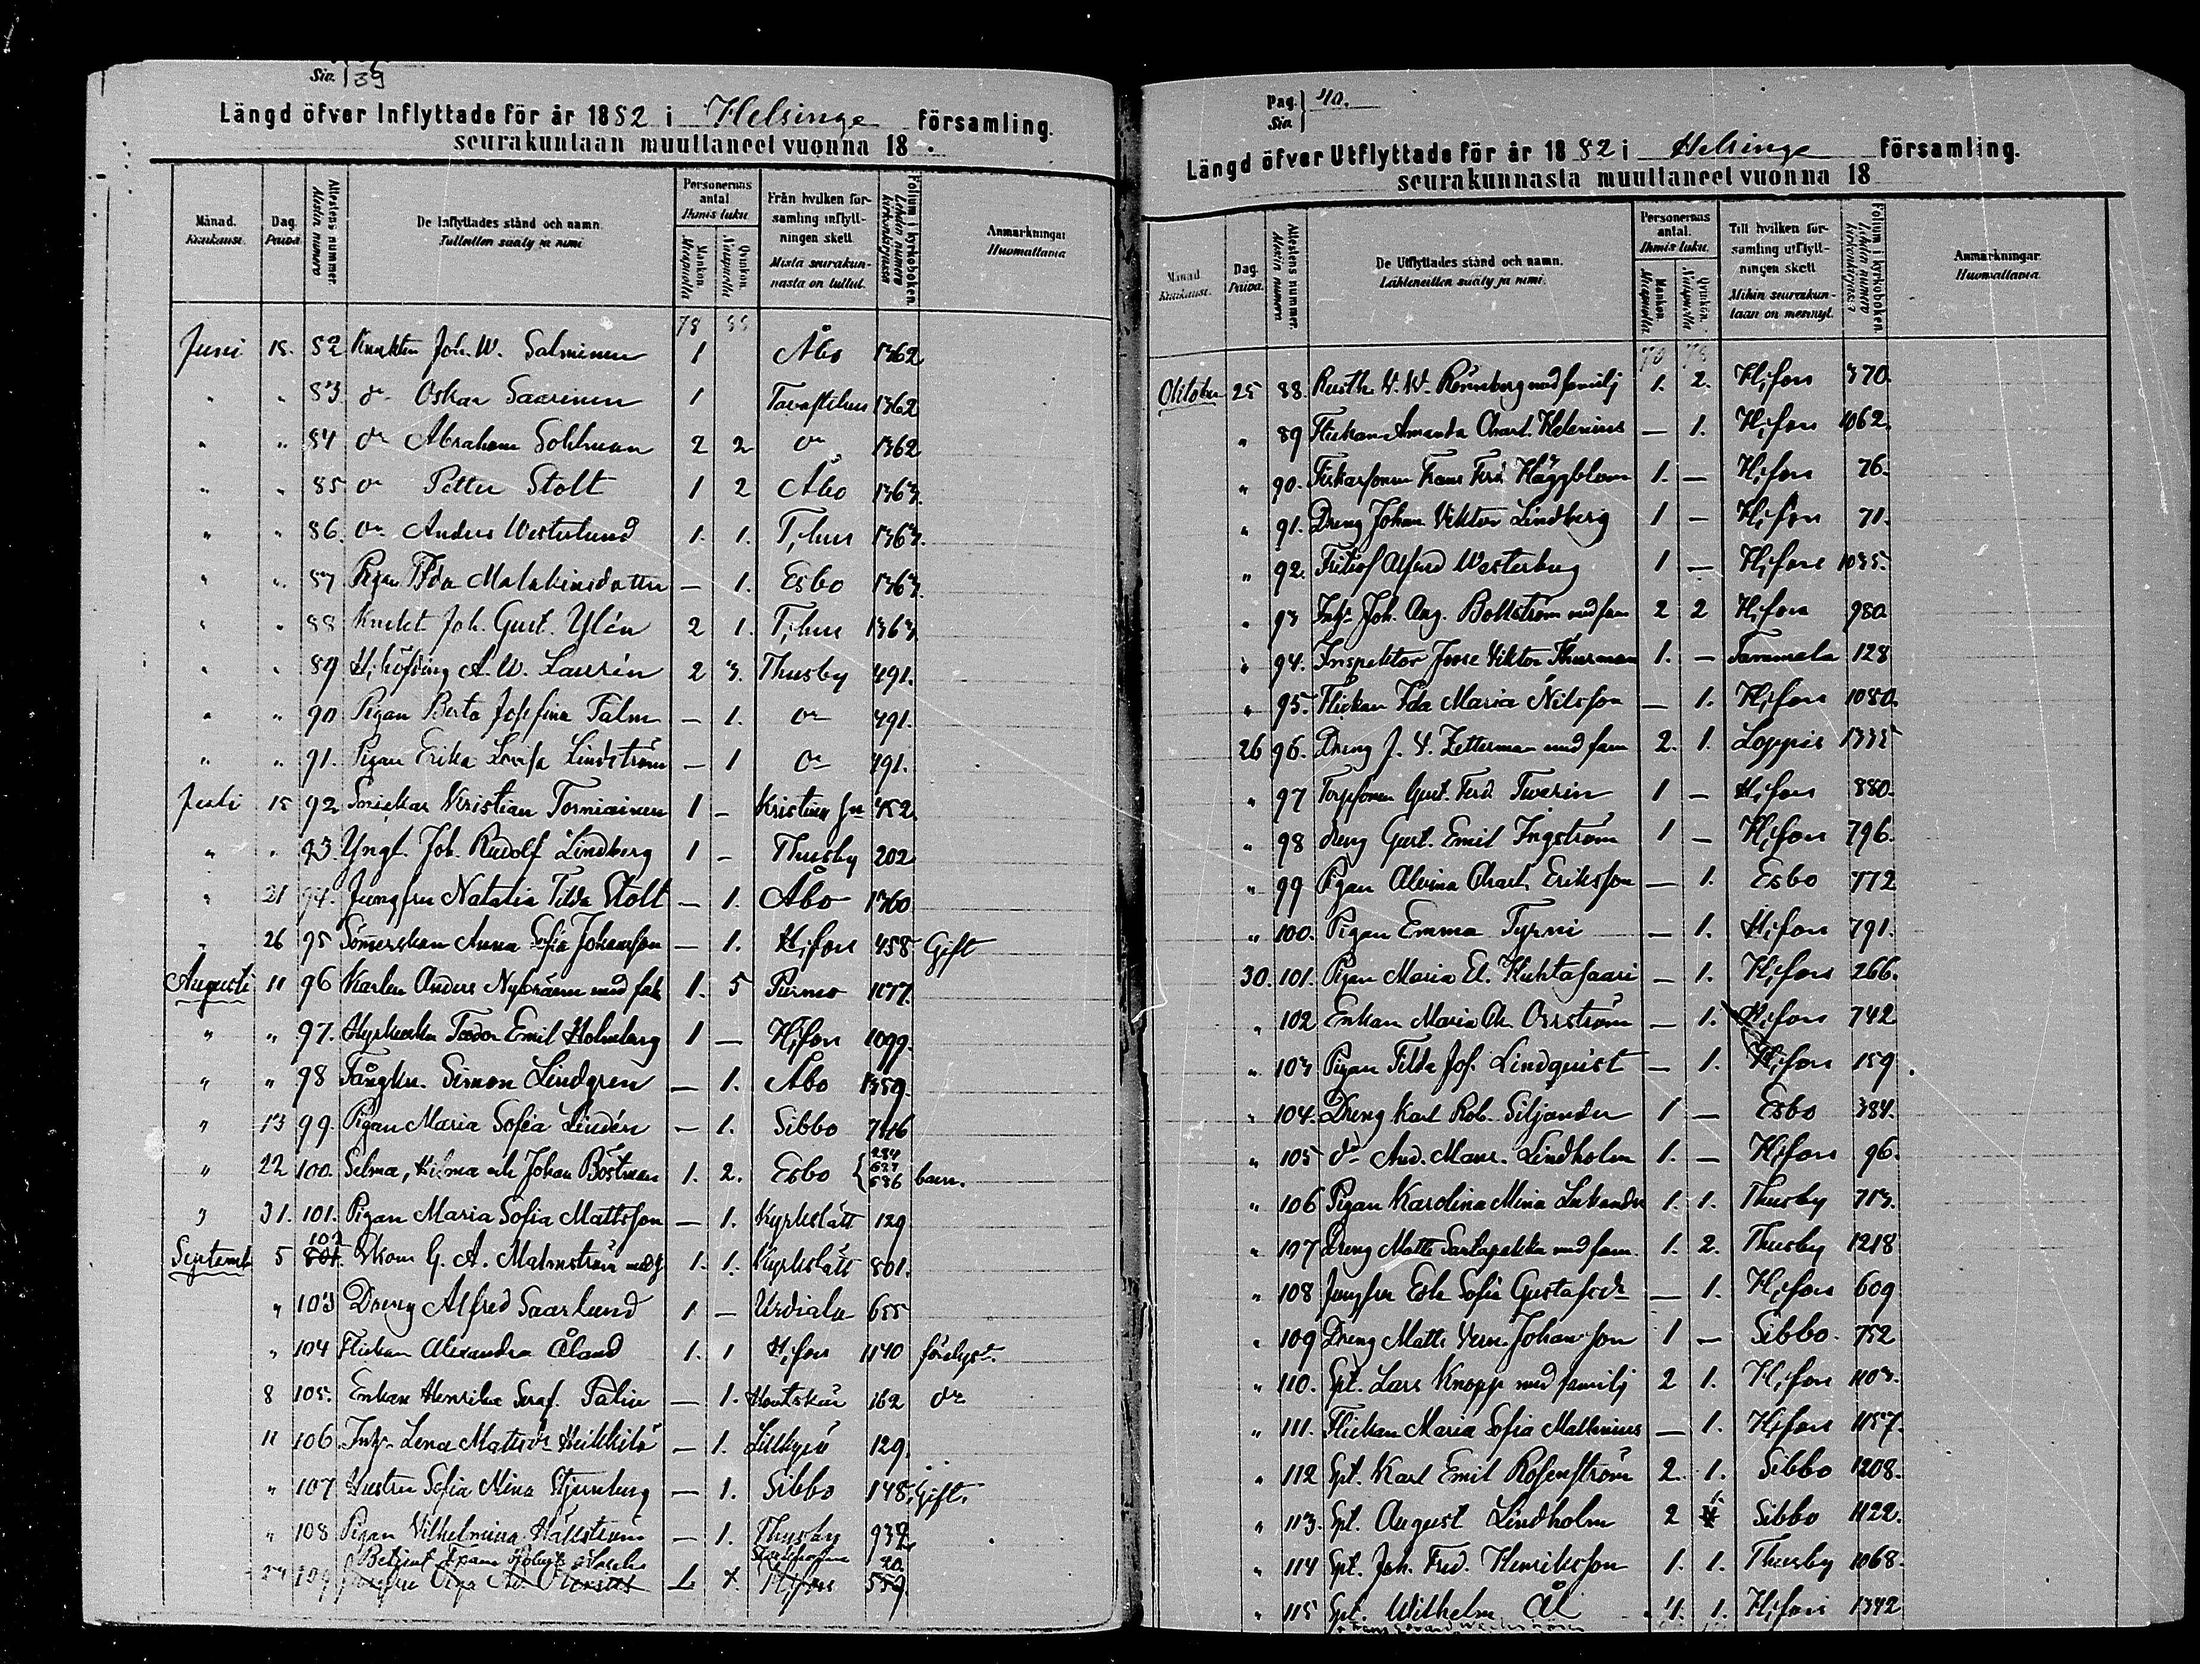 Sio. 39
Längd öfver Inflyttade för år 1882 i Helsinge församling.
seurakuntaan muuttaneet vuonna 18 .
Månad. Kuukausi.
Dag. Päivä.
Attestens nummer Mestin numero
De Inflyttades stånd och namn. Tulleitten sääty ja nimi
Personernas antal Ihmis luku.
Mankön. Miespuolia
Qvinkön. Naispuolia
Från hvilken församling inflyttningen skett Mistä seurakunnasta on tullut.
Folium i kyrkoboken. Lehden numero kirkonkirjassa
Anmärkningar Huomattavia
78 88
Juni 15. 82 Knekten Joh. W. Salminen 1 Åbo 1362
" " 83 do Oskar Saarinen 1 Tavastehus 1362
" " 84 do Abraham Sohlman 2 2 do 1362
" " 85 do Petter Stolt 1 2 Åbo 1363.
" " 86. do Anders Westerlund 1. 1. T.hus 1363.
" " 87 Pigan Ida Malakiasdotter — 1. Esbo 1363.
" " 88 Knekt Joh. Gust. Ylén 2 1. T.hus 1363.
" " 89 H.höfding A. W. Laurén 2 3. Thusby 491.
" " 90 Pigan Berta Josefina Talm — 1. do 491.
" " 91. Pigan Erika Lovisa Lindström — 1 do 491.
Juli 15 92 Snickar Kristian Torniainen 1 — Kristina 452.
" " 93. Yngl. Joh. Rudolf Lindberg 1 — Thusby 202
" 21 94. Jungfru Natalia Tilda Stolt — 1. Åbo 1360
" 26 95 Sömmerskan Anna Sofia Johansson — 1. H.fors 458 Gift
Augusti 11 96 Karlen Anders Nybränn med fam 1. 5 Purmo 1077.
" " 97. Teodor Emil Holmberg 1 — H.fors 1099.
" " 98 Simon Lindgren — 1. Åbo 1359.
" 13 99. Pigan Maria Sofia Lindén — 1. Sibbo 7
" 22 100. Selma, Hilma och Johan Böstman 1. 2. Esbo { 284 637 636 barn.
" 31. 101. Pigan Maria Sofia Mattsson — 1. Kyrkslätt 129.
Septemb 5 102 G. A. Malmström med f 1. 1. Kyrkslätt 801.
" 103 Dreng Alfred Saarlund 1 — Urdiala 655
" 104 Flickan Alexandra Åland 1. 1 H.fors 1140
8 105. Enkan Henrika Seraf. Talin — 1. Houtskär 162 do
11 106 Inh. Lena Mattsdr Heikkilä — 1. 129.
" 107 Hustru Sofia Mina Stjernberg — 1. Sibbo 148. Gift.
" 108 Pigan Vilhelmina Hällström — 1. Thusby 932
27 109 Betjent Frans H.fors 20. 559.
Pag. Sio. } 40.
Längd öfver Utflyttade för år 1882 i Helsinge församling.
seurakunnasta muuttaneet vuonna 18
Månad Kuukausi.
Dag. Päivä.
Attestens nummer. Mestin numero
De Utflyttades stånd och namn. Lähteneitten sääty ja nimi.
Personernas antal. Ihmis luku.
Mankön. Miespuolia.
Qvinkön. Naispuolia
Till hvilken församling utflyttningen skett Mihin seurakuntaan on mennyt.
Folium i kyrkoboken. Lehden numero kirkonkirjassa
Anmärkningar. Huomattavia.
70 78
Oktober 25 88. Rusth. V. W. Rönnberg med familj 1. 2. H.fors 370.
" 89 Flickan Amanda Charl. Helenius — 1. H.fors 1062.
" 90. Fiskarsonen Frans Ferd. Häggblom 1. — H.fors 76.
" 91. Dreng Johan Viktor Lindberg 1 — H.fors 71.
" 92. Fritiof Alfred Westerberg 1 — H.fors 1035.
" 93 Inh. Joh. Aug. Bollström med fam 2 2 H.fors 980.
" 94. Inspektor Viktor Thurman 1. — Tammela 128
" 95. Flickan Ida Maria Nilsson — 1. H.fors 1080.
26 96. Dreng J. V. Zetterman med fam 2. 1. Loppis 1335
" 97 Torpsonen Gust. Ferd. Tverin 1 — H.fors 880.
" 98 dreng Gust. Emil Ingström 1 — H.fors 796.
" 99 Pigan Alvina Charl. Eriksson — 1. Esbo 772
" 100. Pigan Emma Tyrni — 1. H.fors 791.
30. 101. Pigan Maria El. Huhtasaari — 1. H.fors 266.
" 102 Enkan Maria Ch. Orrström — 1. H.fors 742
" 103 Pigan Tilda Jos. Lindquist — 1. H.fors 159.
" 104. Dreng Karl Rob. Siljander 1 — Esbo 384.
" 105 do And. Mans. Lindholm 1. — H.fors 96.
" 106 Pigan Karolina Mina Lukander 1. 1. Thusby 713.
" 107 Dreng Matts med fam. 1. 2. Thusby 1218
" 108 Jungfru Eva Sofia Gustafsdr — 1. H.fors 609
" 109 Dreng Matts Johansson 1 — Sibbo. 752
" 110. Spt. Lars Knopp med familj 2 1. H.fors 1103.
" 111. Flickan Maria Sofia Mallenius — 1. H.fors 1157.
" 112 Spt. Karl Emil Rosenström 2. 1. Sibbo 1208.
" 113. Spt. August Lindholm 2 Sibbo 1122.
" 114 Spt. Joh. Fred. Henriksson 1. 1. Thusby 1068.
" 115 Spt. Wilhelm Ål 4. 1. H.fors 1342